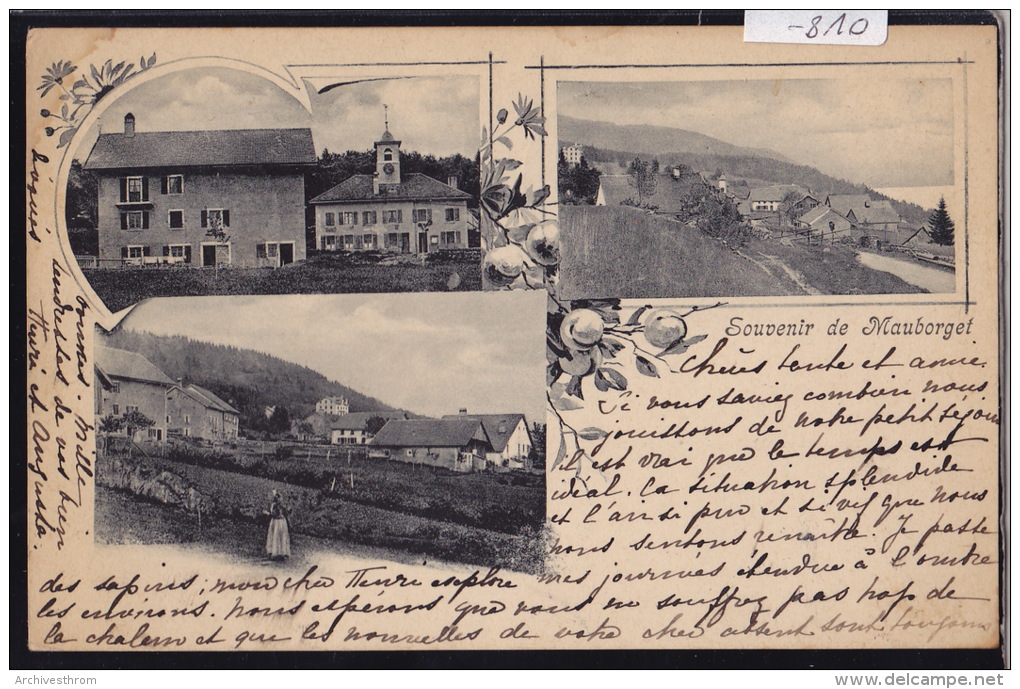 -810
Souvenir de Mauborget
Chère tante et amie.
Si vous saviez combien nous
jouissons de notre petit séjour
Il est vrai que le temps est
idéal. La situation splendide
et l'air si pur et si vif que nous
nous sentons renaître. Je passe
mes journées étendue à l'ombre
des sapins; mon cher Henri explore
les environs. Nous espérons que vous ne souffrez pas trop de
la chaleur et que les nouvelles de votre cher absent sont toujours
bonnes. Mille
tendresses de vos bien
Henri et Augusta.
Archivesthrom
www.delcampe.net